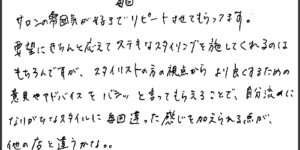 毎回
サロンの雰囲気が好きでリピートさせてもらってます。
要望にきちんと応えてステキなスタイリングを施してくれるのは
もちろんですが、スタイリストの方の視点から より良くするための
意見やアドバイスを バシッ と言ってもらえることで、自分流めに
なりがちなスタイルに 毎回違った感じを加えられる点が、
他の店と違うかな。。